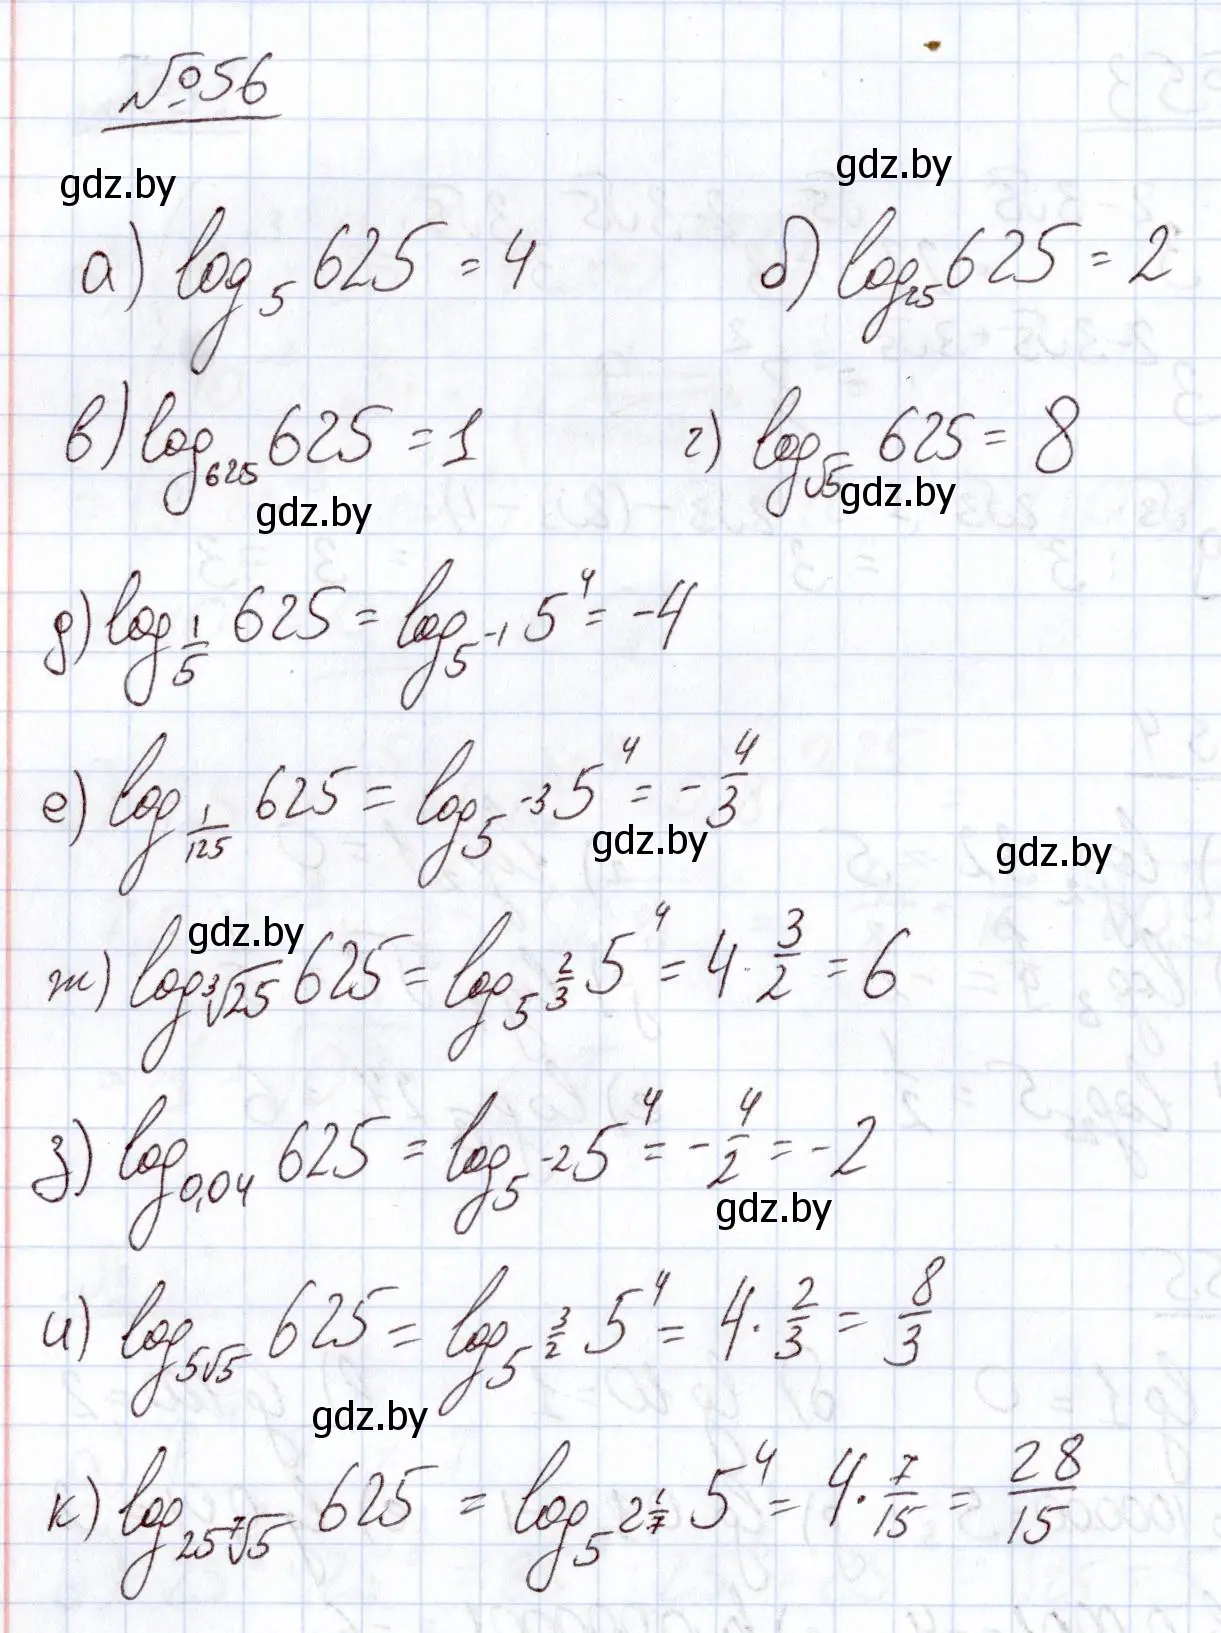 №56
gdz.by
gdz.by
а) log₅ 625 = 4 б) log₂₅ 625 = 2
в) log₆₂₅ 625 = 1 г) log_√5 625 = 8
gdz.by
gdz.by
д) log_(1/5) 625 = log_(5^-1) 5⁴ = -4
е) log_(1/125) 625 = log_(5^-3) 5⁴ = -4/3
gdz.by
gdz.by
gdz.by
ж) log_∛25 625 = log_(5^(2/3)) 5⁴ = 4 · 3/2 = 6
з) log_0,04 625 = log_(5^-2) 5⁴ = -4/2 = -2
gdz.by
и) log_5√5 625 = log_(5^(3/2)) 5⁴ = 4 · 2/3 = 8/3
gdz.by
к) log_(25 ⁷√5) 625 = log_(5^(2 1/7)) 5⁴ = 4 · 7/15 = 28/15